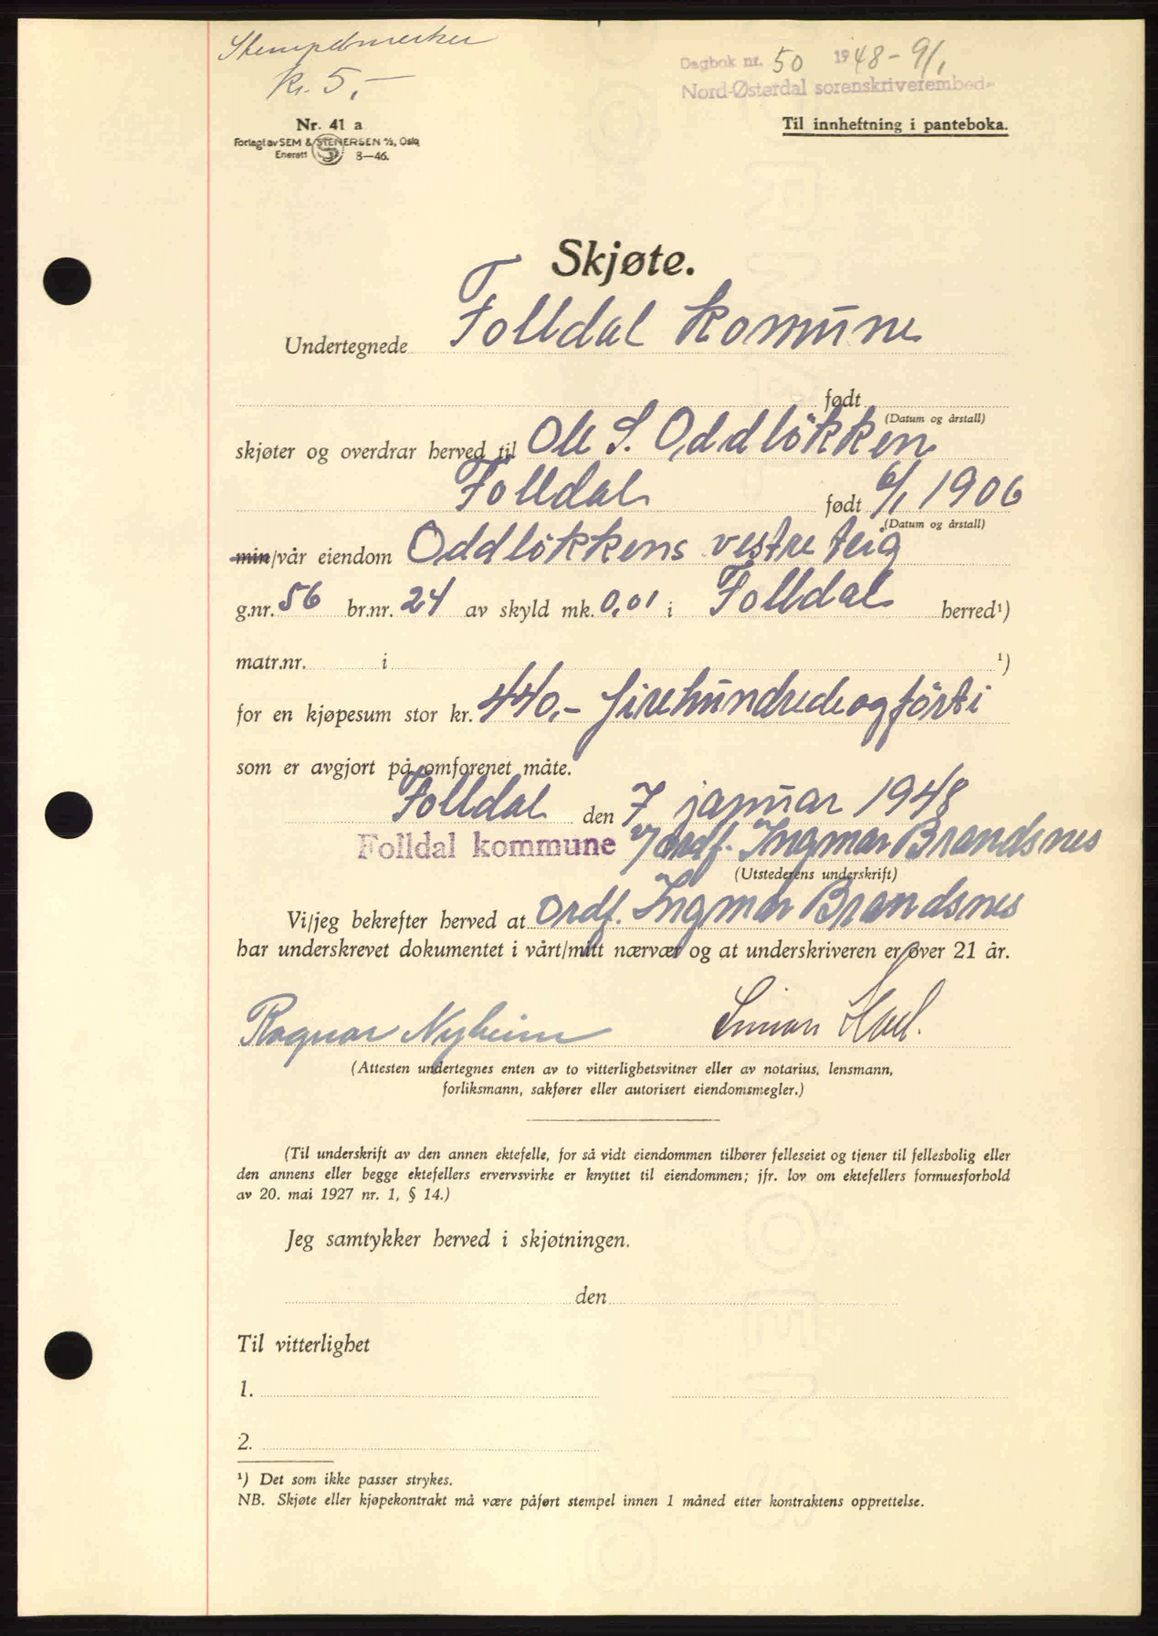 Stempelmerker
kr. 5,-
Dagbok nr. 50 1948-9/1
Nord-Østerdal sorenskriverembede
Nr. 41 a
Forlagt av SEM & STENERSEN A/S, Oslo
Enerett S 8—46.
Til innheftning i panteboka.
Skjøte.
Undertegnede Folldal komūne
født
(Datum og årstall)
skjøter og overdrar herved til Ole S. Oddlökken
Folldal født 6/1 1906
(Datum og årstall)
min/vår eiendom Oddlökkens vestre teig
g.nr. 56 br.nr. 24 av skyld mk. 0,01 i Folldal herred¹)
matr.nr. i ¹)
for en kjøpesum stor kr. 440,- firehūndredeogförti
som er avgjort på omforenet måte.
Folldal den 7 janūar 1948
Folldal kommune v/ ordf. Ingmar Brandsnes
(Utstederens underskrift)
Vi/jeg bekrefter herved at ordf. Ingmar Brandsnes
har underskrevet dokumentet i vårt/mitt nærvær og at underskriveren er over 21 år.
Ragnar Nyheim Simon
(Attesten undertegnes enten av to vitterlighetsvitner eller av notarius, lensmann,
forliksmann, sakfører eller autorisert eiendomsmegler.)
(Til underskrift av den annen ektefelle, for så vidt eiendommen tilhører felleseiet og tjener til fellesbolig eller
den annens eller begge ektefellers ervervsvirke er knyttet til eiendommen; jfr. lov om ektefellers formuesforhold
av 20. mai 1927 nr. 1, § 14.)
Jeg samtykker herved i skjøtningen.
den
Til vitterlighet
1.
2.
¹) Det som ikke passer strykes.
NB. Skjøte eller kjøpekontrakt må være påført stempel innen 1 måned etter kontraktens opprettelse.